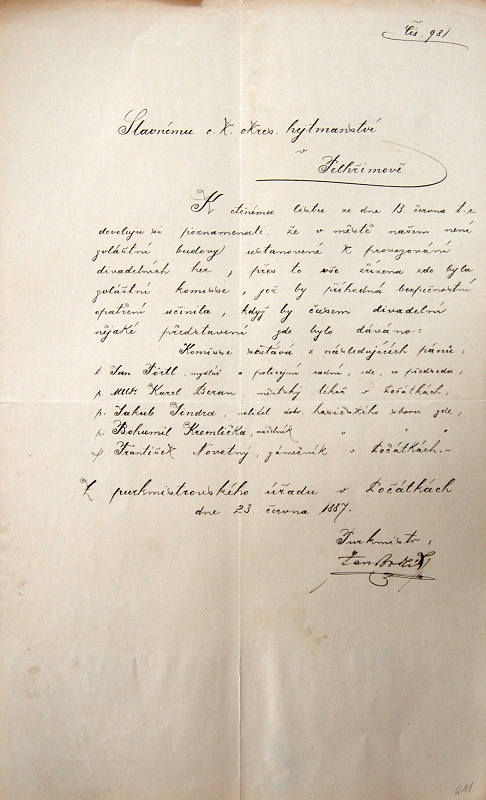 Čís. 981.
Slavnému c. k. okres. hejtmanství
v
Pelhřimově
K ctěnému listu ze dne 13. června t. r.
dovoluju si poznamenati že v městě našem není
zvláštní budovy ustanovené k provozování
divadelních her, přes to vše zřízena zde byla
zvláštní komisse, jež by příhodná bezpečnostní
opatření učinila, když by časem divadelní
nějaké představení zde bylo dáváno:
Komisse sestává z následujících pánů:
p. Jan Förtl, mydlář a policejní radní, zde, co předseda,
p. MUDr. Karel Beran městský lékař v Počátkách,
p. Jakub Jindra, velitel dobr. hasičského sboru zde,
p. Bohumil Kremlička, náčelník " " "
p. František Novotný, zámečník v Počátkách.–
Z purkmistrovského úřadu v Počátkách
dne 23. června 1887.
Purkmistr:
Jan
211